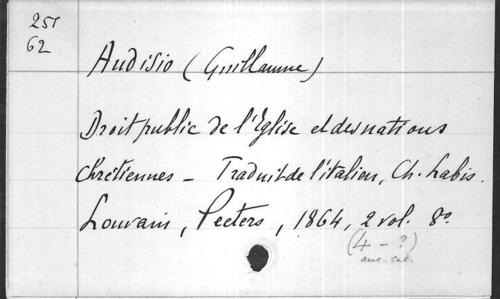 251
62
Audisio (Guillaume)
Droit public de l'Eglise et des nations
chrétiennes – Traduit de l'italien, Ch. Labis.
Louvain, Peeters, 1864, 2 vol. 8º
(4 - ?)
anc. cat.